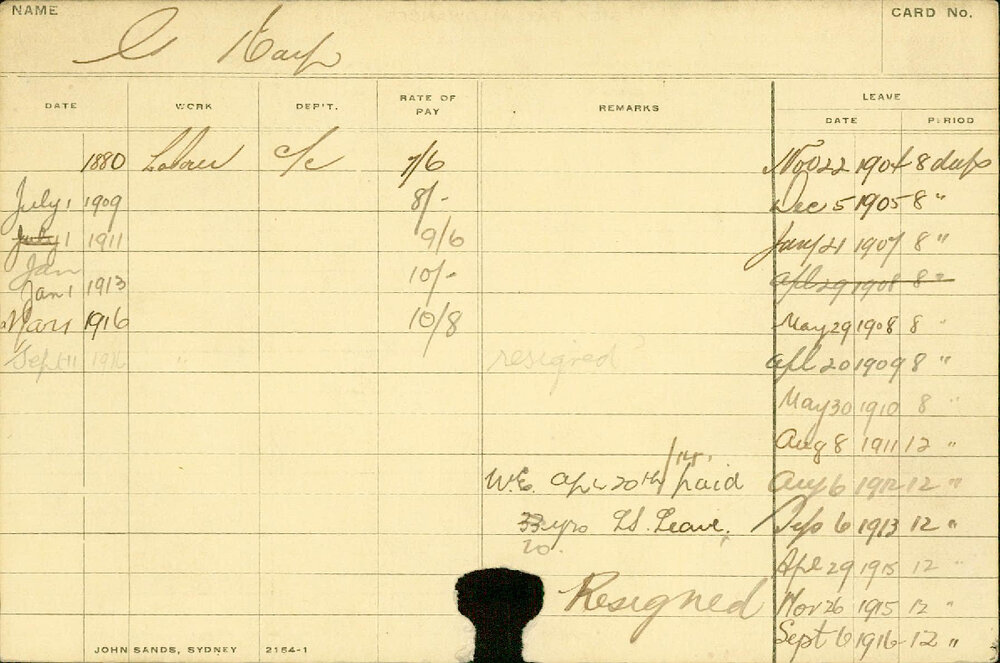 NAME
CARD No.
C Karp
DATE WORK DEP'T. RATE OF PAY REMARKS LEAVE
DATE PERIOD
1880 Labour c/c 7/6 Nov 22 1904 8 days
July 1 1909 8/- Dec 5 1905 8 "
July 1 1911 9/6 Jany 21 1907 8 "
Jan
Jan 1 1913 10/- Apl 29 1908 8 "
1916 10/8 May 29 1908 8 "
Sept 11 1916 " resigned? Apl 20 1909 8 "
May 30 1910 8 "
Aug 8 1911 12 "
W.E. Apl 20th/14. paid Aug 6 1912 12 "
33 yrs LS. Leave. Sep 6 1913 12 "
20.
Apl 29 1915 12 "
Resigned Nov 26 1915 12 "
Sept 6 1916 12 "
JOHN SANDS, SYDNEY 2154-1